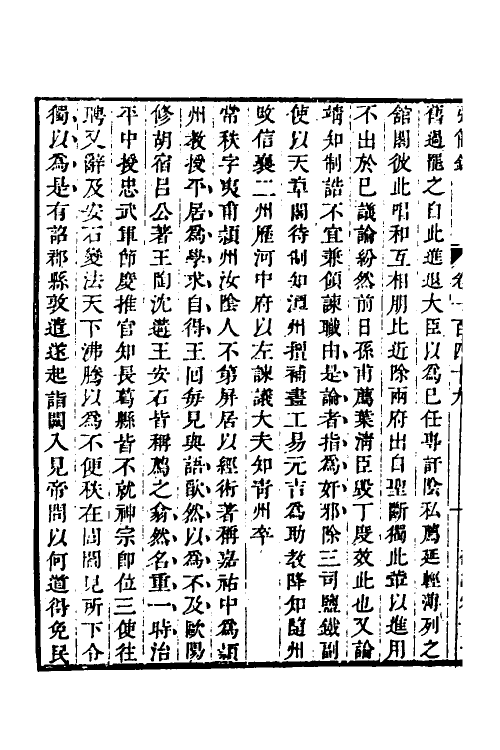 卷一百四十九
舊過罷之自此進退大臣以為己任專訐陰私薦延輕薄列之
館閣彼此唱和互相朋比近除兩府出自聖斷獨此輩以進用
不出於已議論紛然前日孫甫薦葉清臣毀丁度效此也又論
靖知制誥不宜兼領諫職由是論者指為奸邪除三司鹽鐵副
使以天章閣待制知潭州擅補畫工易元吉為助教降知隨州
改信襄二州歷河中府以左諫議大夫知青州卒
常秩字夷甫潁州汝陰人不第屏居以經術著稱嘉祐中為潁
州教授平居為學求自得王回每見與語歉然以為不及歐陽
修胡宿呂公著王陶沈遘王安石皆稱薦之翕然名重一時治
平中授忠武軍節度推官知長葛縣皆不就神宗即位三使往
聘又辭及安石變法天下沸騰以為不便秩在閭閻見所下令
獨以為是有詔郡縣敦遣遂起詣闕入見帝問以何道得免民